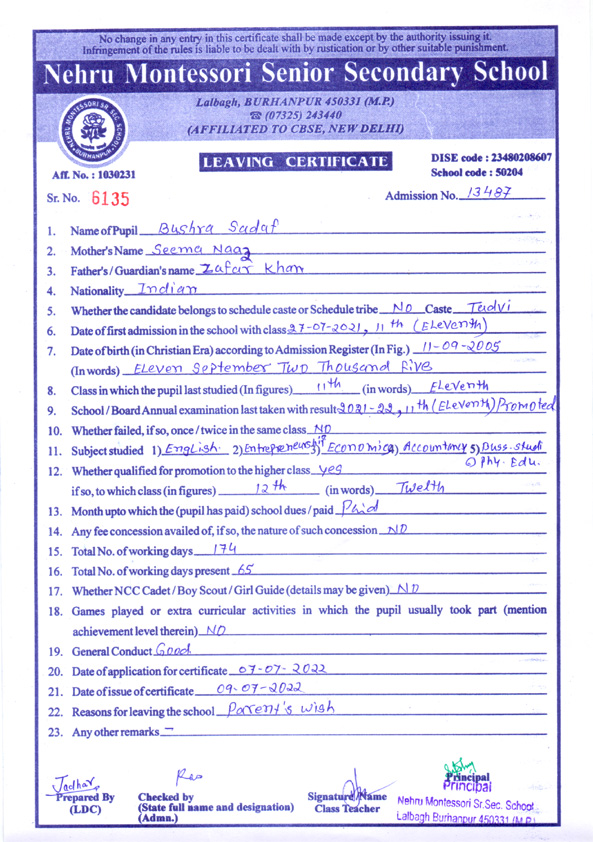 No change in any entry in this certificate shall be made except by the authority issuing it.
Infringement of the rules is liable to be dealt with by rustication or by other suitable punishment.
Nehru Montessori Senior Secondary School
Lalbagh, BURHANPUR 450331 (M.P.)
☎ (07325) 243440
(AFFILIATED TO CBSE, NEW DELHI)
NEHRU MONTESSORI SR. SEC. SCHOOL
BURHANPUR
LEAVING CERTIFICATE
DISE code : 23480208607
School code : 50204
Aff. No. : 1030231
Sr. No. 6135
Admission No. 13487
1. Name of Pupil Bushra Sadaf
2. Mother's Name Seema Naaz
3. Father's / Guardian's name Zafar Khan
4. Nationality Indian
5. Whether the candidate belongs to schedule caste or Schedule tribe No Caste Tadvi
6. Date of first admission in the school with class 27-07-2021, 11th (Eleventh)
7. Date of birth (in Christian Era) according to Admission Register (In Fig.) 11-09-2005
(In words) Eleven September Two Thousand Five
8. Class in which the pupil last studied (In figures) 11th (in words) Eleventh
9. School / Board Annual examination last taken with result 2021-22, 11th (Eleventh) Promoted
10. Whether failed, if so, once / twice in the same class NO
11. Subject studied 1) English 2) Entrepreneurship 3) Economics 4) Accountancy 5) Buss. Studi
6) Phy. Edu.
12. Whether qualified for promotion to the higher class yes
if so, to which class (in figures) 12th (in words) Twelth
13. Month upto which the (pupil has paid) school dues / paid Paid
14. Any fee concession availed of, if so, the nature of such concession NO
15. Total No. of working days 174
16. Total No. of working days present 65
17. Whether NCC Cadet / Boy Scout / Girl Guide (details may be given) NO
18. Games played or extra curricular activities in which the pupil usually took part (mention
achievement level therein) NO
19. General Conduct Good
20. Date of application for certificate 07-07-2022
21. Date of issue of certificate 09-07-2022
22. Reasons for leaving the school Parent's wish
23. Any other remarks –
Jadhav
Prepared By
(LDC)
Checked by
(State full name and designation)
(Admn.)
Signature/Name
Class Teacher
Principal
Principal
Nehru Montessori Sr.Sec. School
Lalbagh Burhanpur 450331 (M.P.)